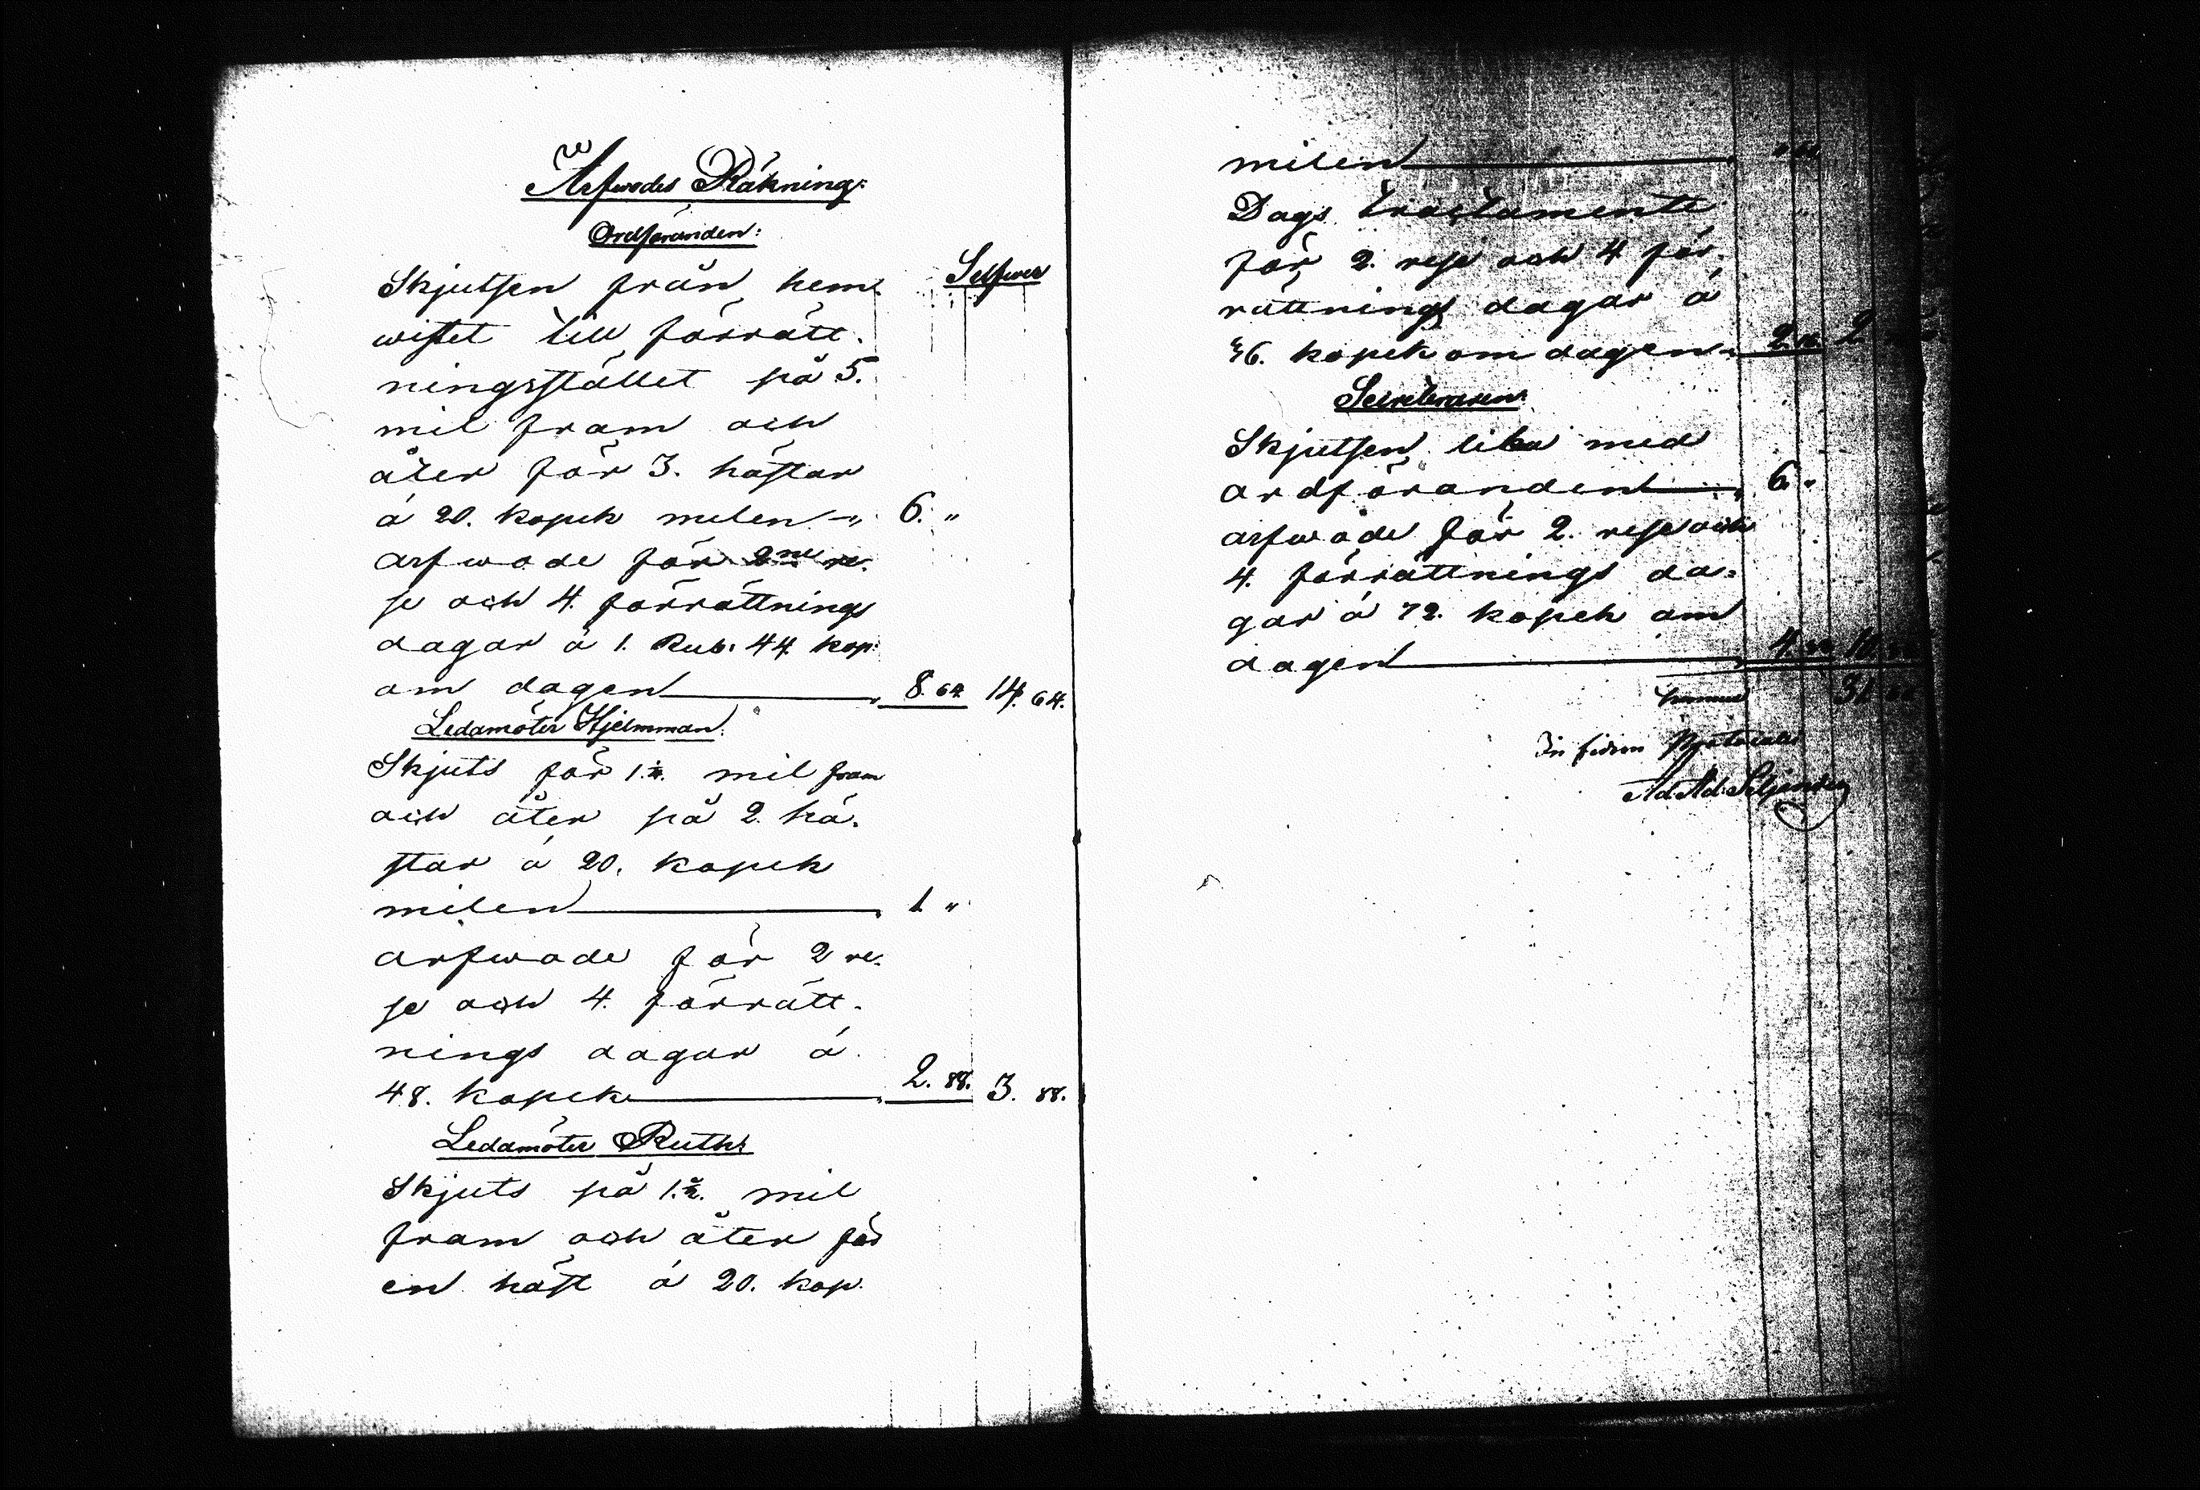 Arfwodes Räkning:
Ordföranden:
Silfwer
Skjutsen från hem
wistet till förrätt-
ningsstället på 5.
mil fram och
åter för 3. hästar
á 20. kopek milen — 6. "
arfwode för 2ne re-
se och 4. förrättnings
dagar á 1. Rub. 44 kop:
om dagen — 8 64. 14. 64.
Ledamöter Hjelmman:
Skjuts för 1.¼. mil fram
och åter på 2. hä-
star á 20. kopek
milen — 1 "
arfwode för 2 re-
se och 4. förrätt-
nings dagar á
48. kopek — 2. 88. 3. 88.
Ledamöter Ruth:
Skjuts på 1. mil
fram och åter för
en häst á 20. kop.
milen —
Dags tractamente
för 2. rese och 4. för-
rättnings dagar á
36. kopek om dagen 2. 16. 2
Secreteraren
Skjutsen lika med
ordföranden — 6. "
arfwode för 2. rese och
4. förrättnings da-
gar á 72. kopek om
dagen — 4. 32 10. 32
Summa 31
In fidem Protocolli